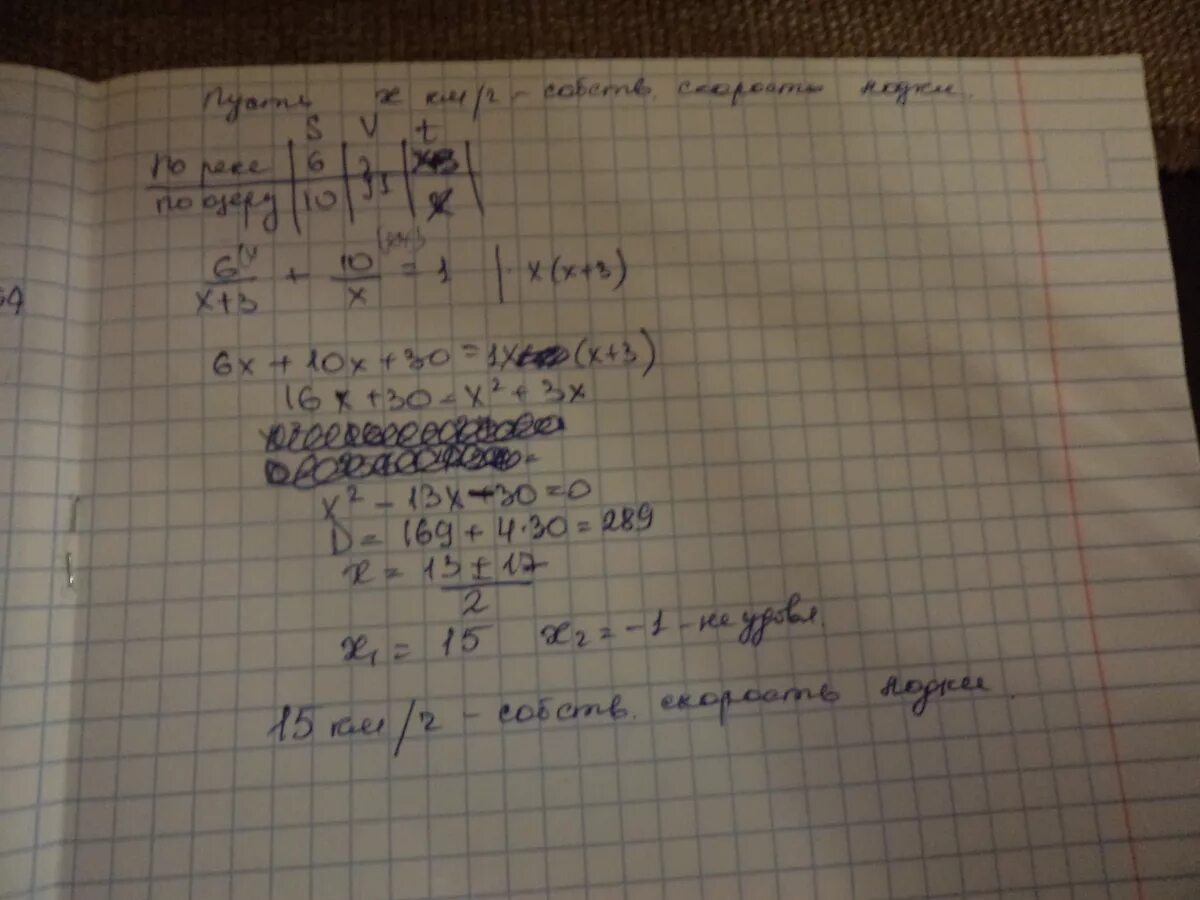 Пусть x км/ч - собств. скорость лодки.
S V t
По реке | 6 | | x+3
По озеру | 10 | | x
6/(x+3) + 10/x = 1 | · x(x+3)
6x + 10x + 30 = 1x (x+3)
16x + 30 = x² + 3x
x² - 13x - 30 = 0
D = 169 + 4·30 = 289
x = (13 ± 17)/2
x₁ = 15 x₂ = -1 - не удовл.
15 км/ч - собств. скорость лодки.